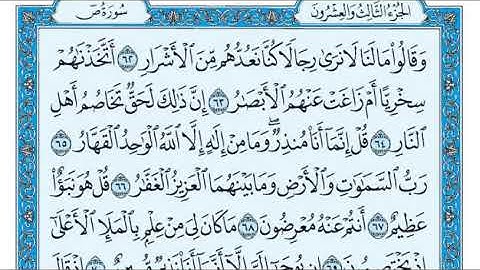 سُورَةُ صٓ الجُزْءُ الثَّالِثُ وَالعِشْرُونَ
وَقَالُواْ مَا لَنَا لَا نَرَىٰ رِجَالًا كُنَّا نَعُدُّهُم مِّنَ ٱلۡأَشۡرَارِ ٦٢ أَتَّخَذۡنَٰهُمۡ
سِخۡرِيًّا أَمۡ زَاغَتۡ عَنۡهُمُ ٱلۡأَبۡصَٰرُ ٦٣ إِنَّ ذَٰلِكَ لَحَقّٞ تَخَاصُمُ أَهۡلِ
ٱلنَّارِ ٦٤ قُلۡ إِنَّمَآ أَنَا۠ مُنذِرٞۖ وَمَا مِنۡ إِلَٰهٍ إِلَّا ٱللَّهُ ٱلۡوَٰحِدُ ٱلۡقَهَّارُ ٦٥
رَبُّ ٱلسَّمَٰوَٰتِ وَٱلۡأَرۡضِ وَمَا بَيۡنَهُمَا ٱلۡعَزِيزُ ٱلۡغَفَّٰرُ ٦٦ قُلۡ هُوَ نَبَؤٌاْ
عَظِيمٌ ٦٧ أَنتُمۡ عَنۡهُ مُعۡرِضُونَ ٦٨ مَا كَانَ لِيَ مِنۡ عِلۡمِۭ بِٱلۡمَلَإِ ٱلۡأَعۡلَىٰٓ
إِذۡ يَخۡتَصِمُونَ ٦٩ إِن يُوحَىٰٓ إِلَيَّ إِلَّآ أَنَّمَآ أَنَا۠ نَذِيرٞ مُّبِينٌ ٧٠ إِذۡ قَالَ